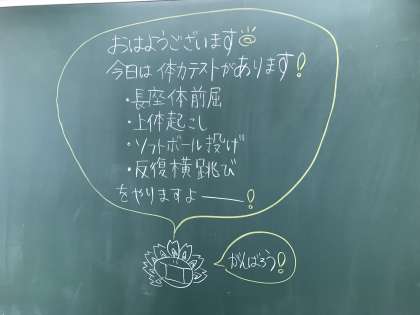 おはようございます
今日は体力テストがあります!
・長座体前屈
・上体起こし
・ソフトボール投げ
・反復横跳び
をやりますよ──!
がんばろう!